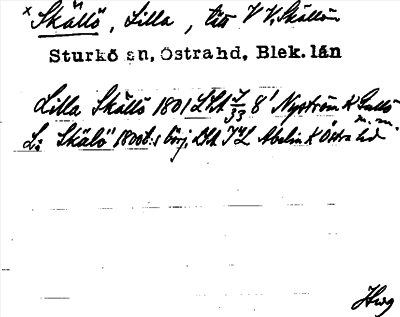 x Skällö, Lilla, liv V V. Skällön
Sturkö sn, Östra hd, Blek. län
Lilla Skällö 1801 LSA I/33 8¹ Nyström K Gallö m. m.
L:a Skälö 1800t:s börj. LSA Abelin K Östra hd
Hwg